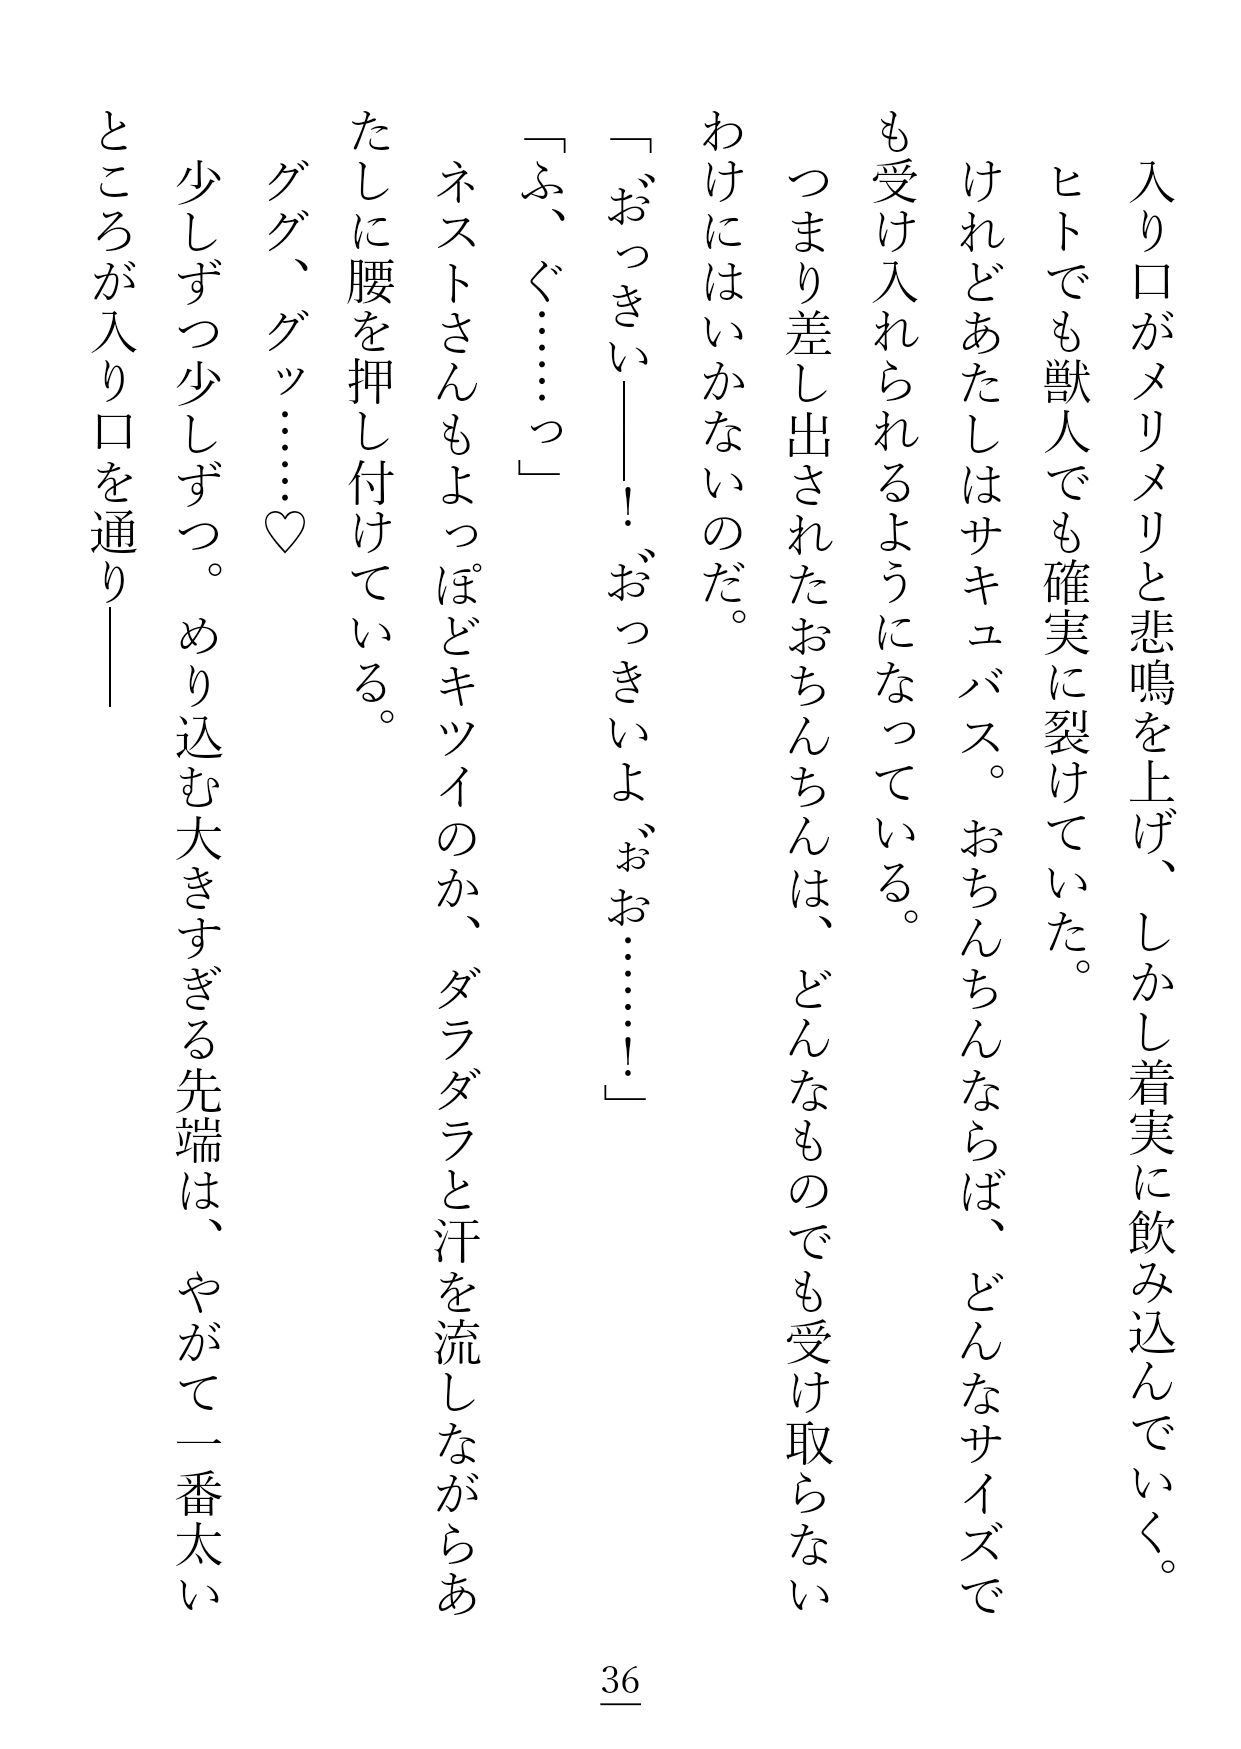 入り口がメリメリと悲鳴を上げ、しかし着実に飲み込んでいく。
ヒトでも獣人でも確実に裂けていた。
けれどあたしはサキュバス。おちんちんならば、どんなサイズで
も受け入れられるようになっている。
つまり差し出されたおちんちんは、どんなものでも受け取らない
わけにはいかないのだ。
「お゛っきい――！お゛っきいよぉ゛お……！」
「ふ、ぐ……っ」
ネストさんもよっぽどキツイのか、ダラダラと汗を流しながらあ
たしに腰を押し付けている。
グググ、グッ……♡
少しずつ少しずつ。めり込む大きすぎる先端は、やがて一番太い
ところが入り口を通り――
36